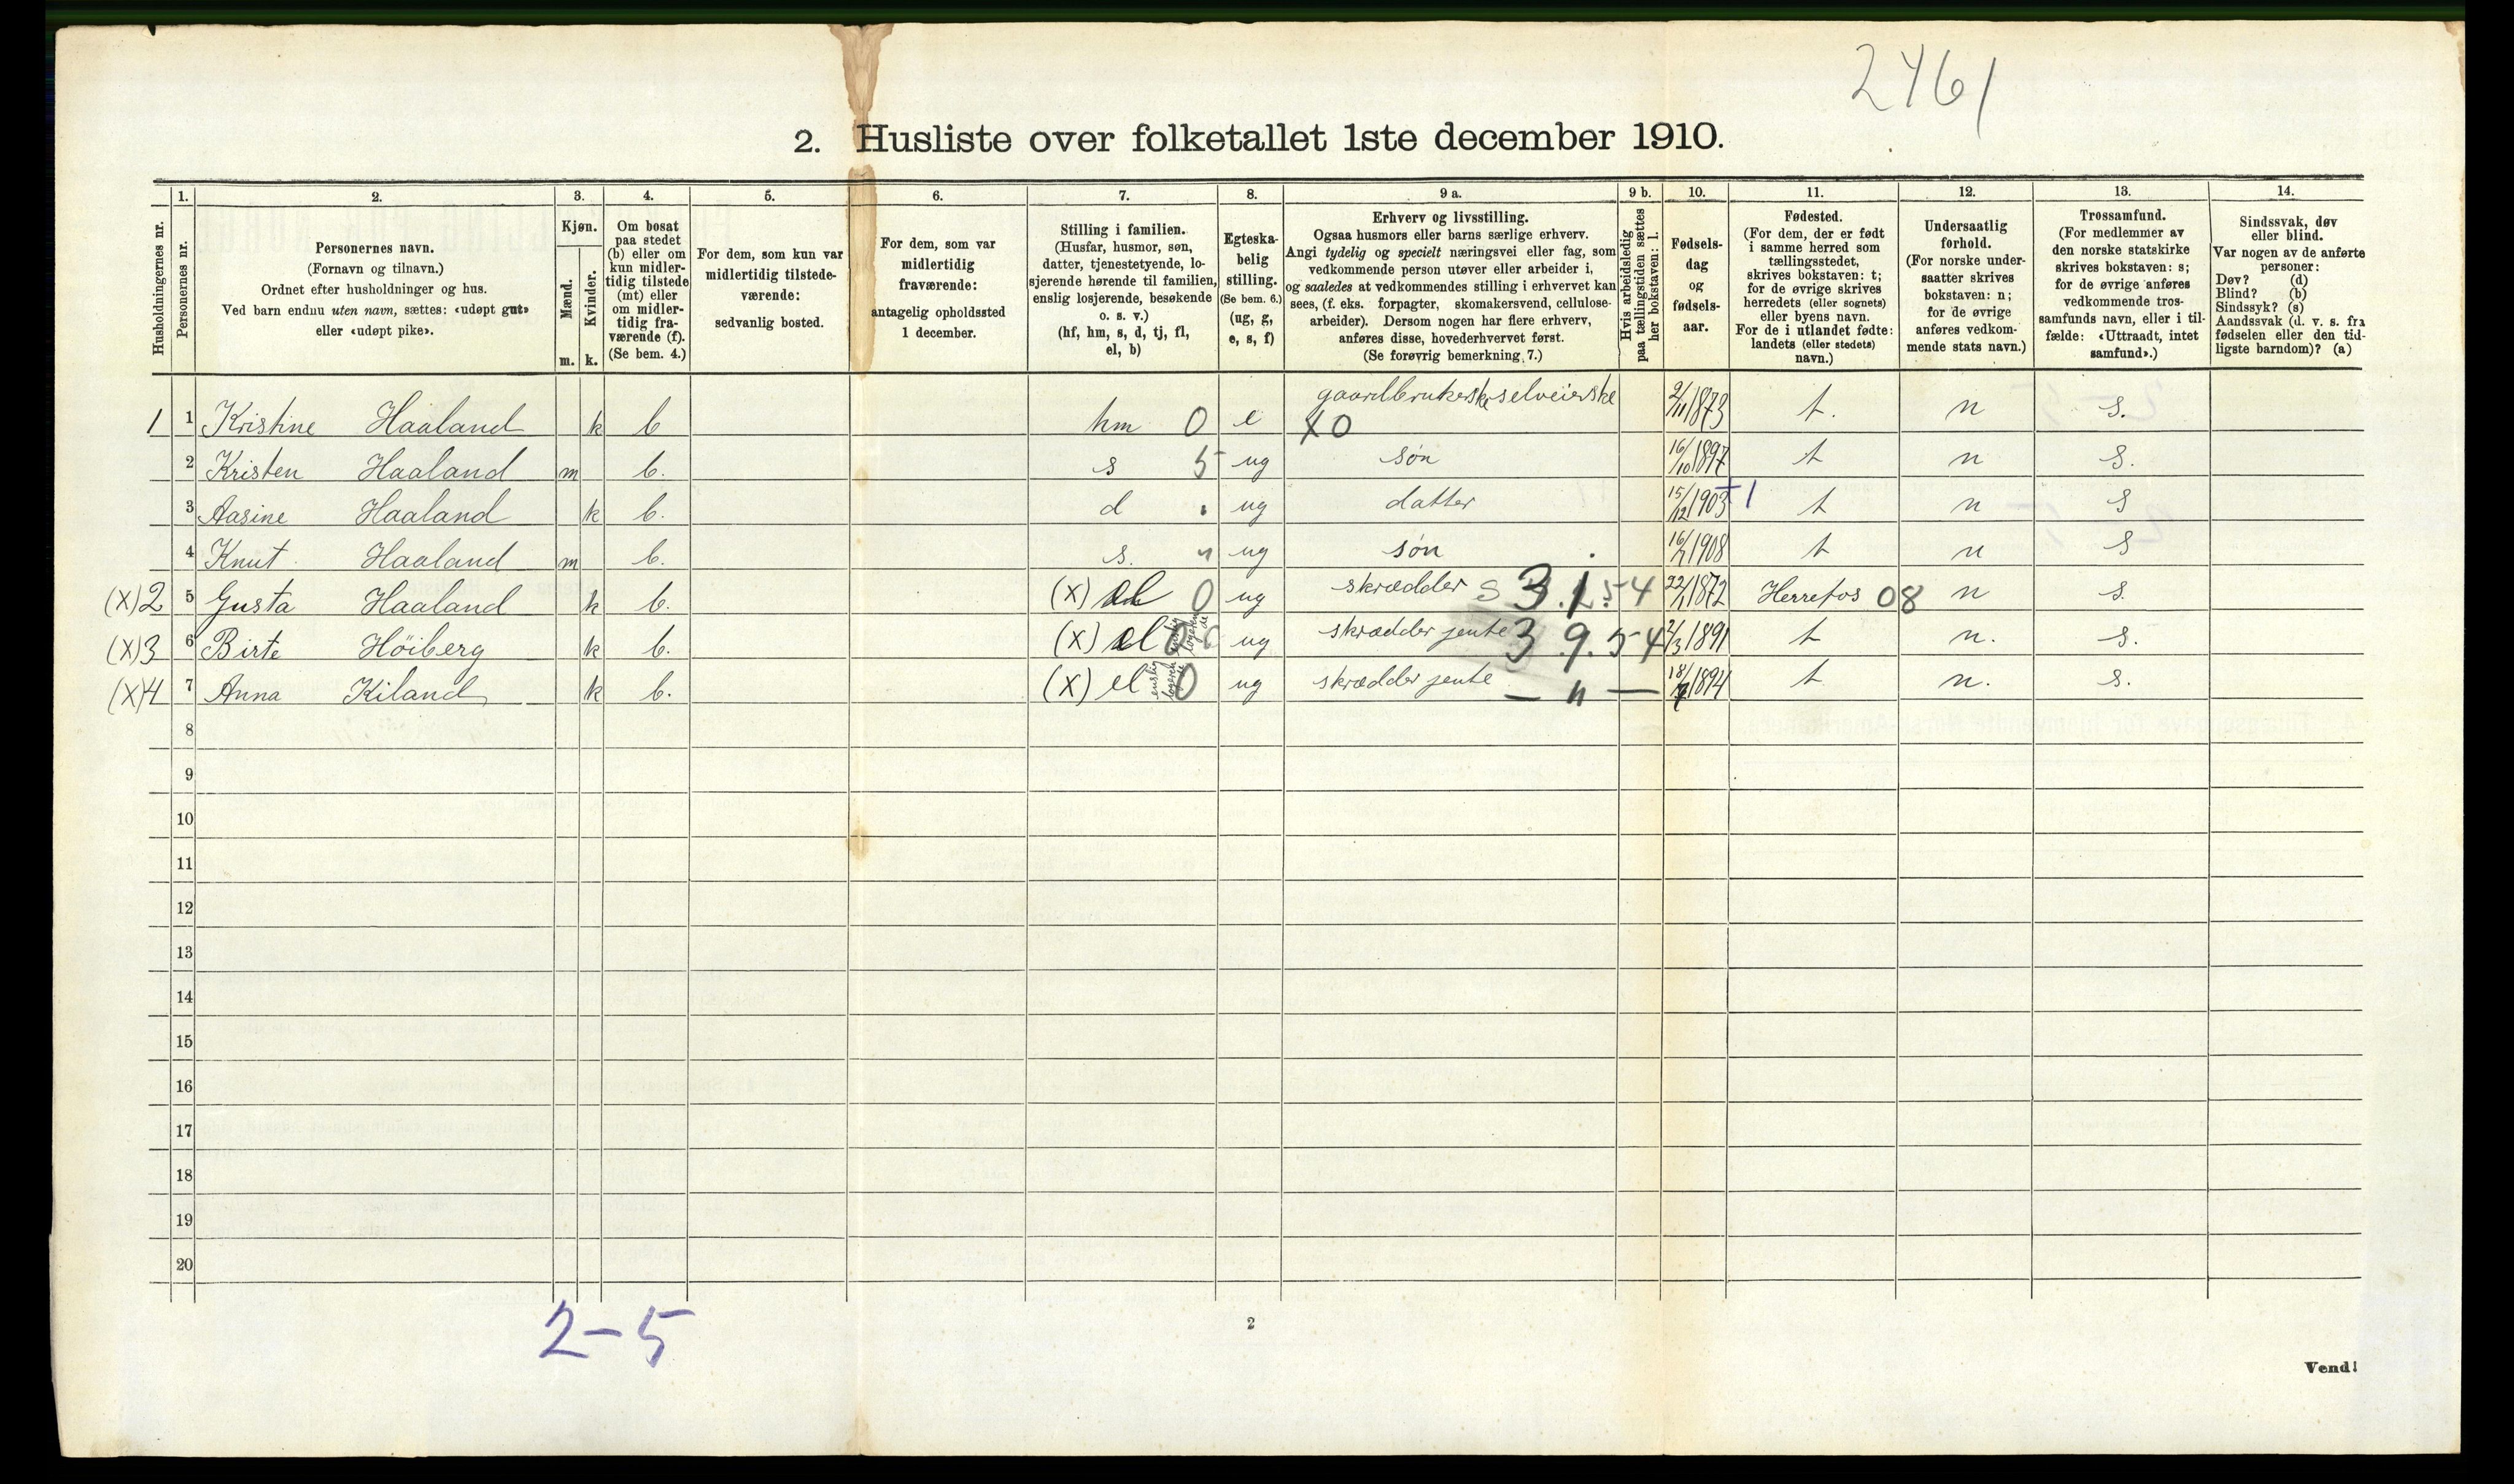 2461
2. Husliste over folketallet 1ste december 1910.
Husholdningernes nr.
1.
Personernes nr.
2.
Personernes navn.
(Fornavn og tilnavn.)
Ordnet efter husholdninger og hus.
Ved barn endnu uten navn, sættes: «udøpt gut»
eller «udøpt pike».
3.
Kjøn.
Mænd.
Kvinder.
m. k.
4.
Om bosat
paa stedet
(b) eller om
kun midler-
tidig tilstede
(mt) eller
om midler-
tidig fra-
værende (f).
(Se bem. 4.)
5.
For dem, som kun var
midlertidig tilstede-
værende:
sedvanlig bosted.
6.
For dem, som var
midlertidig
fraværende:
antagelig opholdssted
1 december.
7.
Stilling i familien.
(Husfar, husmor, søn,
datter, tjenestetyende, lo-
sjerende hørende til familien,
enslig losjerende, besøkende
o. s. v.)
(hf, hm, s, d, tj, fl,
el, b)
8.
Egteska-
belig
stilling.
(Se bem. 6.)
(ug, g,
e, s, f)
9 a.
Erhverv og livsstilling.
Ogsaa husmors eller barns særlige erhverv.
Angi tydelig og specielt næringsvei eller fag, som
vedkommende person utøver eller arbeider i,
og saaledes at vedkommendes stilling i erhvervet kan
sees, (f. eks. forpagter, skomakersvend, cellulose-
arbeider). Dersom nogen har flere erhverv,
anføres disse, hovederhvervet først.
(Se forøvrig bemerkning 7.)
9 b.
Hvis arbeidsledig
paa tællingstiden sættes
her bokstaven: l.
10.
Fødsels-
dag
og
fødsels-
aar.
11.
Fødested.
(For dem, der er født
i samme herred som
tællingsstedet,
skrives bokstaven: t;
for de øvrige skrives
herredets (eller sognets)
eller byens navn.
For de i utlandet fødte:
landets (eller stedets)
navn.)
12.
Undersaatlig
forhold.
(For norske under-
saatter skrives
bokstaven: n;
for de øvrige
anføres vedkom-
mende stats navn.)
13.
Trossamfund.
(For medlemmer av
den norske statskirke
skrives bokstaven: s;
for de øvrige anføres
vedkommende tros-
samfunds navn, eller i til-
fælde: «Uttraadt, intet
samfund».)
14.
Sindssvak, døv
eller blind.
Var nogen av de anførte
personer:
Døv? (d)
Blind? (b)
Sindssyk? (s)
Aandssvak (d. v. s. fra
fødselen eller den tid-
ligste barndom)? (a)
1 1 Kristine Haaland k b hm 0 e gaardbrukerske selveierske X0 2/11 1873 t. n s.
2 Kristen Haaland m b. s 5 ug søn 16/10 1897 t n s.
3 Aasine Haaland k b. d " ug datter 15/12 1903 +1 t n s
4 Knut Haaland m b. s. " ug søn 1908 t n s
(X) 2 5 Gusta Haaland k b. (X) el 0 ug skrædder S 3.1.54 22/1 1872 Herrefos 08 n s.
(X) 3 6 Birte Höiberg k b. (X) el enslig logerende ug skrædder jente 3.9.54 2/3 1891 t n. s.
(X) 4 7 Anna Kiland k b. (X) el enslig logerende 0 ug skrædder jente — " — 1894 t n. s.
8
9
10
11
12
13
14
15
16
17
18
19
20
2-5
2
Vend!